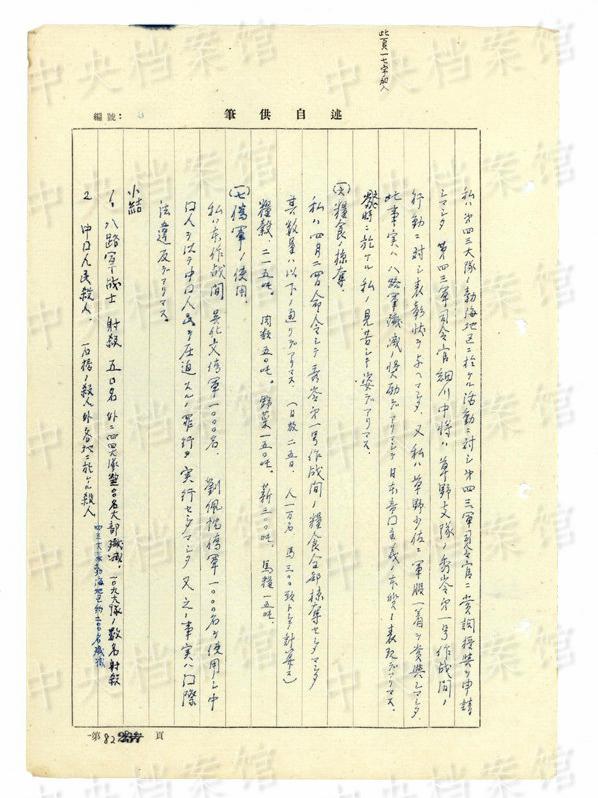 此頁一七字和人
述自供筆
編號：
私ハ第四三大隊ノ渤海地区ニ於ケル活動ニ対シ第四三軍司令官ニ賞詞授與ヲ申請
シマシタ 第四三軍司令官細川中將ハ草野支隊ノ秀嶺第一号作战間ノ
行動ニ対シ表彰状ヲ与ヘマシタ、又私ハ草野少佐ニ軍服一着ヲ賞與シマシタ
此事実ハ八路軍殲滅ノ獎励デアリマシテ日本帝国主義ノ本質ノ表現デアリマス
當時ニ於ケル私ノ姿デアリマス。
(六)糧食ノ掠奪。
私ハ四月二四日命令シテ秀嶺第一号作战間ノ糧食全部掠奪セシメマシタ
其数量ハ以下ノ通リデアリマス、（日数二五日 人一万名 馬三〇〇頭トシテ計算ス）
糧穀、二一五吨。 肉類五〇吨。 野菜一五〇吨。 薪三〇〇吨。 馬糧一五吨。
(七)偽軍ノ使用。
私ハ本作战間 吴化文偽軍一〇〇〇名、 劉佩忱偽軍一〇〇〇名ヲ使用シ中
国人ヲ以テ中国人民ヲ圧迫スルノ罪行ヲ実行セシメマシタ 又之ノ事実ハ国際
法違反デアリマス。
小結
1. 八路軍战士 射殺 五〇名 外ニ四四大隊 数百名大部殲滅、一〇九大隊ノ数名射殺
四三大隊渤海地区約五〇〇名殲滅
2 中国人民殺人、 石橋ノ殺人外各地ニ於ケル殺人
第82頁
中央档案馆